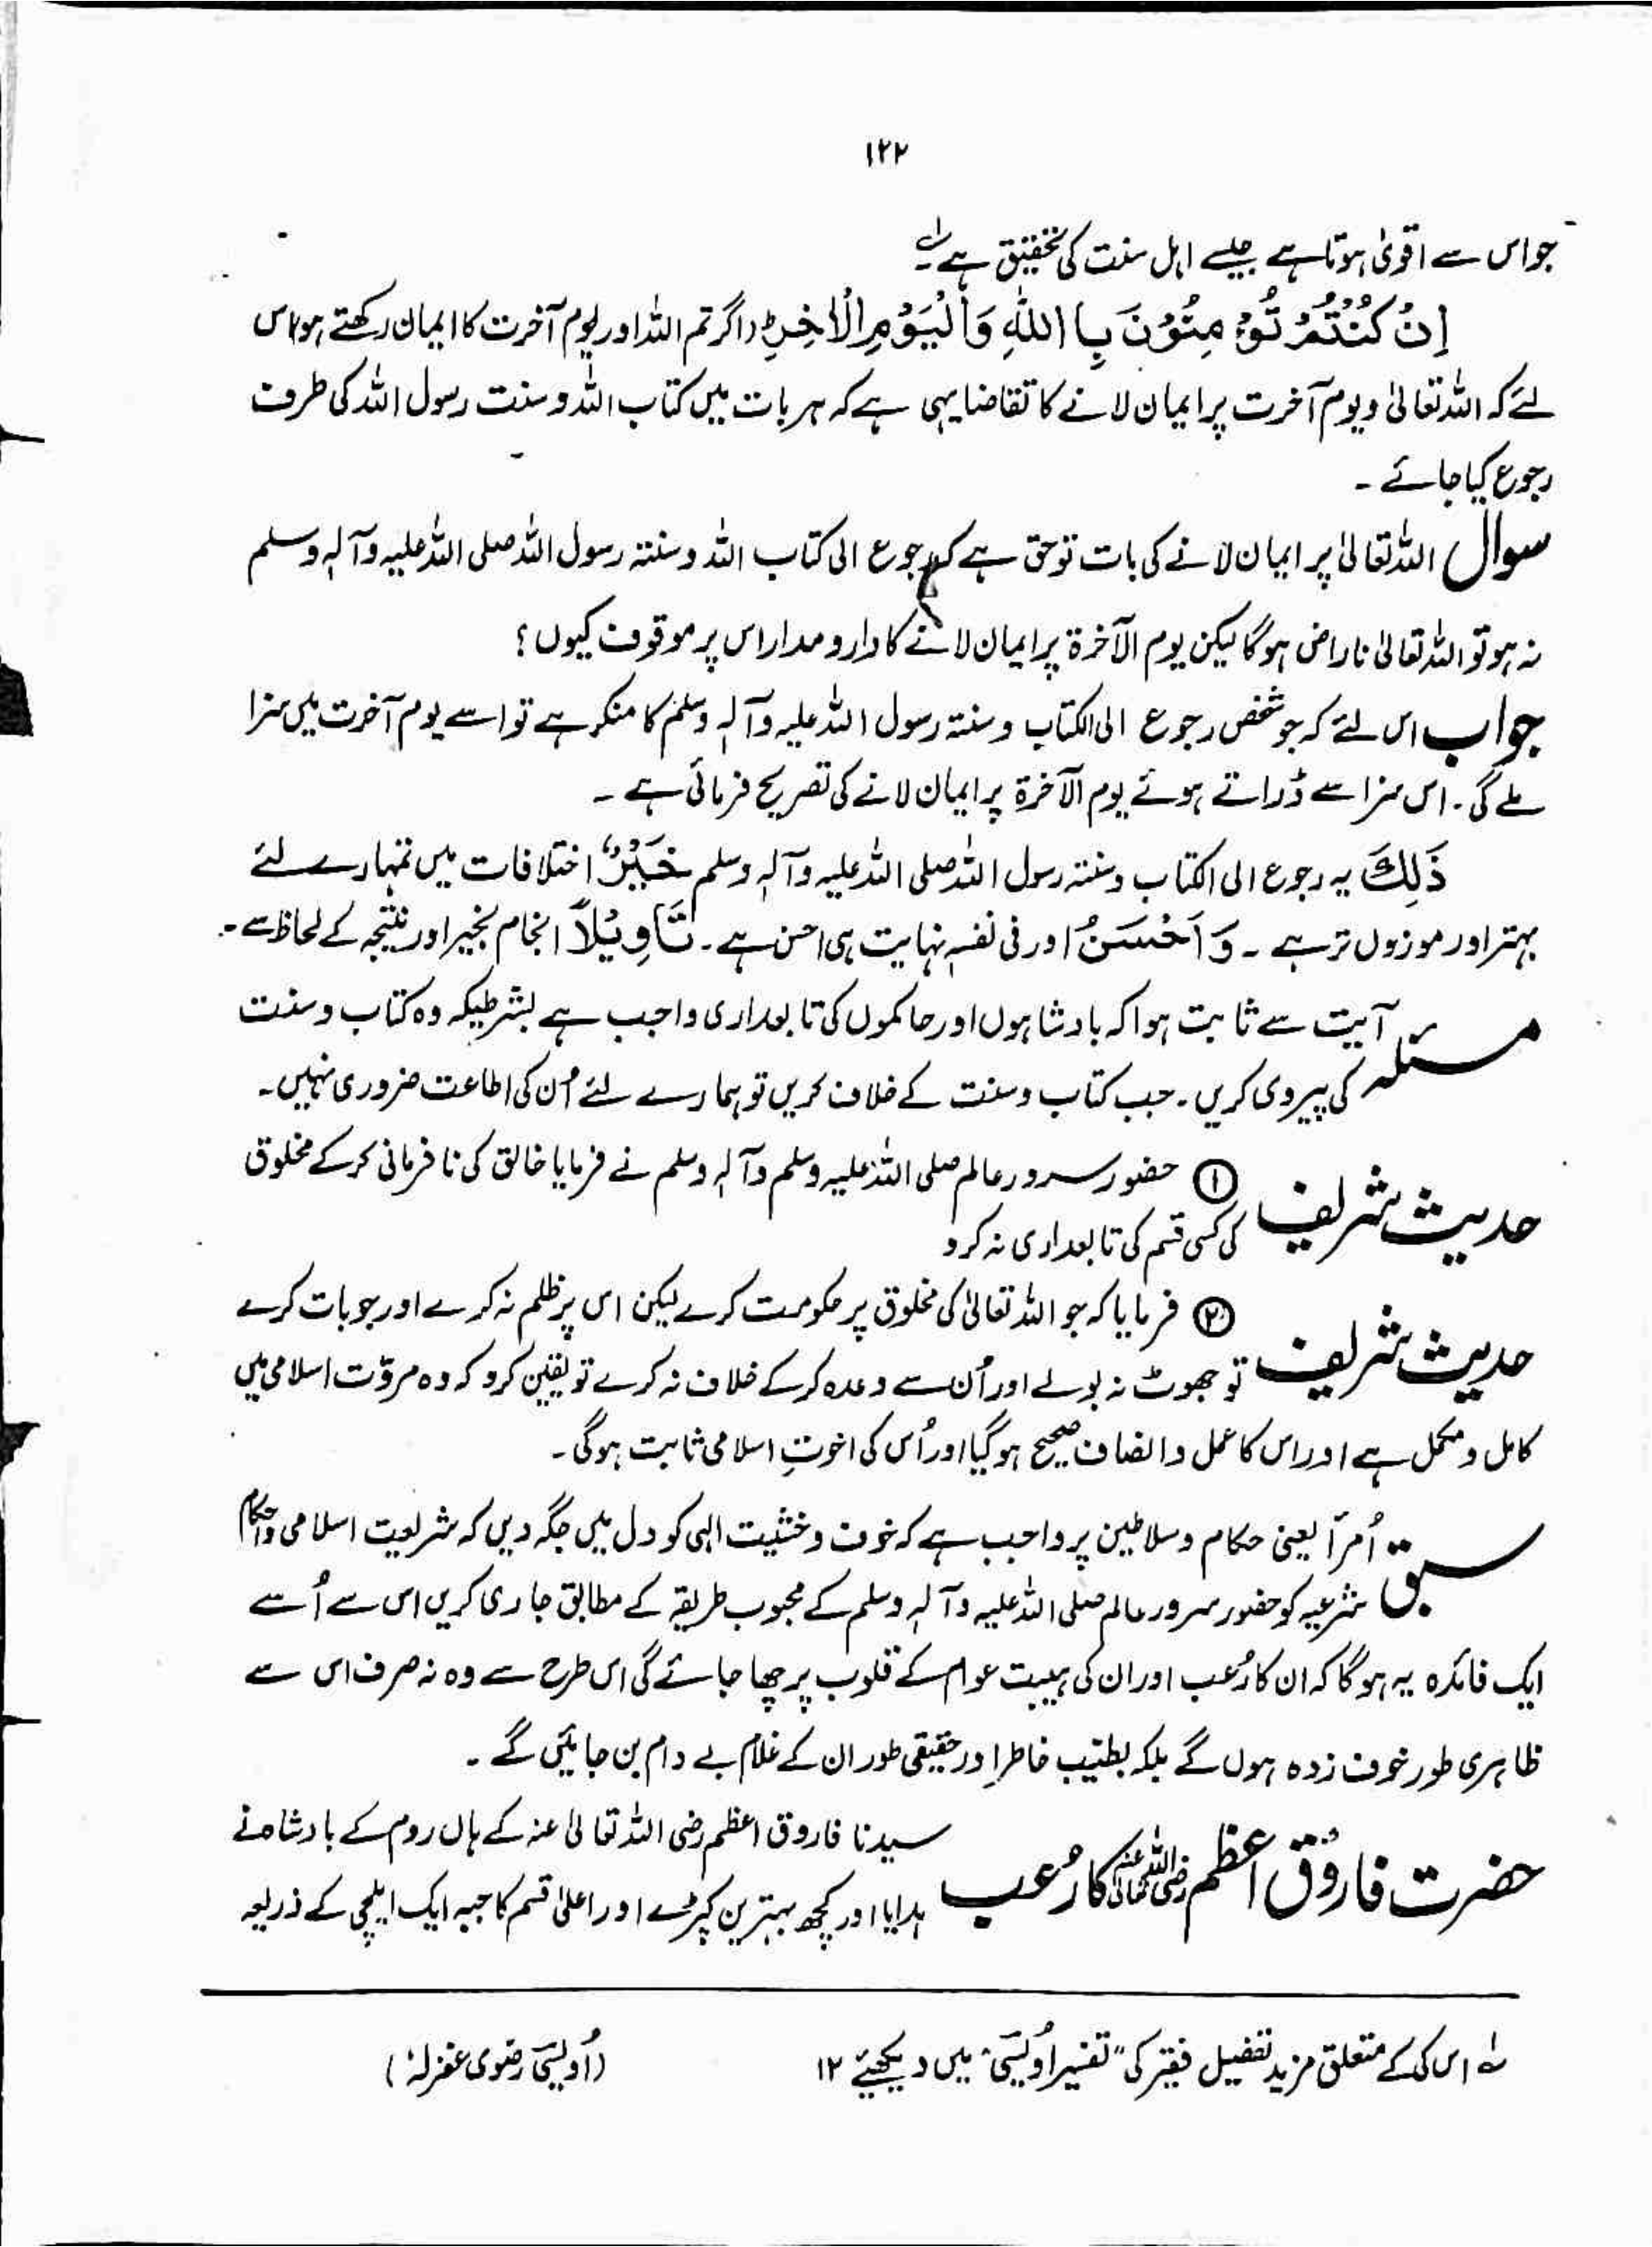 ۱۲۲
جو اس سے اقویٰ ہوتا ہے جیسے اہل سنت کی تحقیق ہے ۔ لہ
اِنْ كُنْتُمْ تُؤْمِنُوْنَ بِاللّٰهِ وَالْيَوْمِ الْاٰخِرِ ؕ (اگر تم اللہ اور یوم آخرت کا ایمان رکھتے ہو) اس
لئے کہ اللہ تعالیٰ و یوم آخرت پر ایمان لانے کا تقاضا یہی ہے کہ ہر بات میں کتاب اللہ و سنت رسول اللہ کی طرف
رجوع کیا جائے ۔
سوال اللہ تعالیٰ پر ایمان لانے کی بات تو حق ہے کہ رجوع الی کتاب اللہ و سنتہ رسول اللہ صلی اللہ علیہ وآلہٖ وسلم
نہ ہو تو اللہ تعالیٰ ناراض ہوگا لیکن یوم الآخرۃ پر ایمان لانے کا دارومدار اس پر موقوف کیوں ؟
جواب اس لئے کہ جو شخص رجوع الی الکتاب و سنتہ رسول اللہ علیہ وآلہٖ وسلم کا منکر ہے تو اسے یوم آخرت میں سزا
ملے گی ۔ اس سزا سے ڈراتے ہوئے یوم الآخرۃ پر ایمان لانے کی تصریح فرمائی ہے ۔
ذٰلِكَ یہ رجوع الی الکتاب و سنتہ رسول اللہ صلی اللہ علیہ وآلہٖ وسلم خَيْرٌ اختلافات میں تمہارے لئے
بہتر اور موزوں تر ہے ۔ وَ اَحْسَنُ اور فی نفسہٖ نہایت ہی احسن ہے ۔ تَاْوِيْلًا انجام بخیر اور نتیجہ کے لحاظ سے ۔
مسئلہ آیت سے ثابت ہوا کہ بادشاہوں اور حاکموں کی تابعداری واجب ہے بشرطیکہ وہ کتاب و سنت
کی پیروی کریں ۔ جب کتاب و سنت کے خلاف کریں تو ہمارے لئے اُن کی اطاعت ضروری نہیں ۔
حدیث شریف ① حضور سرور عالم صلی اللہ علیہ وسلم وآلہٖ وسلم نے فرمایا خالق کی نافرمانی کرکے مخلوق
کی کسی قسم کی تابعداری نہ کرو
حدیث شریف ② فرمایا کہ جو اللہ تعالیٰ کی مخلوق پر حکومت کرے لیکن اس پر ظلم نہ کرے اور جو بات کرے
تو جھوٹ نہ بولے اور اُن سے وعدہ کرکے خلاف نہ کرے تو یقین کرو کہ وہ مروّت اسلامی میں
کامل و مکمل ہے اور اس کا عمل و انصاف صحیح ہوگیا اور اُس کی اخوتِ اسلامی ثابت ہوگی ۔
سبق اُمرآ یعنی حکام و سلاطین پر واجب ہے کہ خوف و خشیت الہی کو دل میں جگہ دیں کہ شریعت اسلامی و احکام
شرعیہ کو حضور سرور عالم صلی اللہ علیہ وآلہٖ وسلم کے محبوب طریقہ کے مطابق جاری کریں اس سے اُسے
ایک فائدہ یہ ہوگا کہ ان کا رُعب اور ان کی ہیبت عوام کے قلوب پر چھا جائے گی اس طرح سے وہ نہ صرف اس سے
ظاہری طور خوف زدہ ہوں گے بلکہ بطیّبِ خاطر اور حقیقی طور ان کے غلام بے دام بن جائیں گے ۔
حضرت فاروق اعظم رضی اللہ تعالیٰ عنہ کا رُعب سیدنا فاروق اعظم رضی اللہ تعالیٰ عنہ کے ہاں روم کے بادشاہ نے
ہدایا اور کچھ بہترین کپڑے اور اعلیٰ قسم کا جبہ ایک ایلچی کے ذریعہ
لہ اس کی کے متعلق مزید تفصیل فقیر کی "تفسیر اُویسی" میں دیکھیئے ۱۲ (اُویسی رضوی غفرلہٗ)